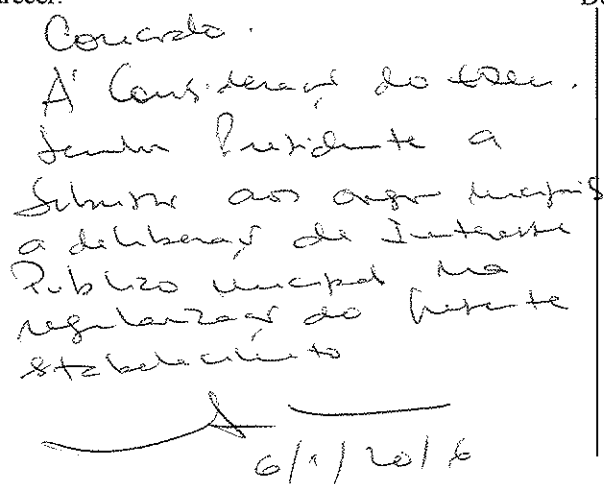 arecer:
De
Concordo.
À Consideração do Exmo.
Senhor Presidente a
submeter aos orgãos municipais
a deliberação de Interesse
Publico municipal na
regularização do presente
estabelecimento
6/1/2016